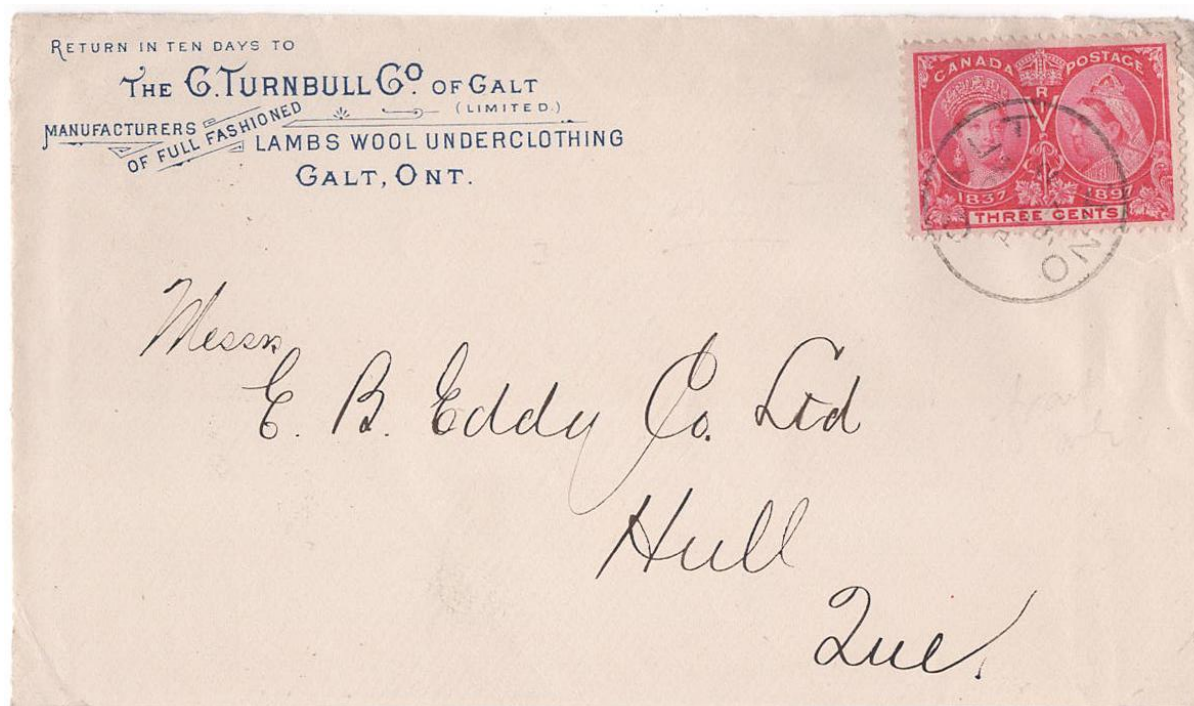 RETURN IN TEN DAYS TO
THE C. TURNBULL Co. OF GALT
(LIMITED.)
MANUFACTURERS
OF FULL FASHIONED
LAMBS WOOL UNDERCLOTHING
GALT, ONT.
CANADA POSTAGE
V R
1837 1897
THREE CENTS
Messrs
E. B. Eddy Co. Ltd
Hull
Que.